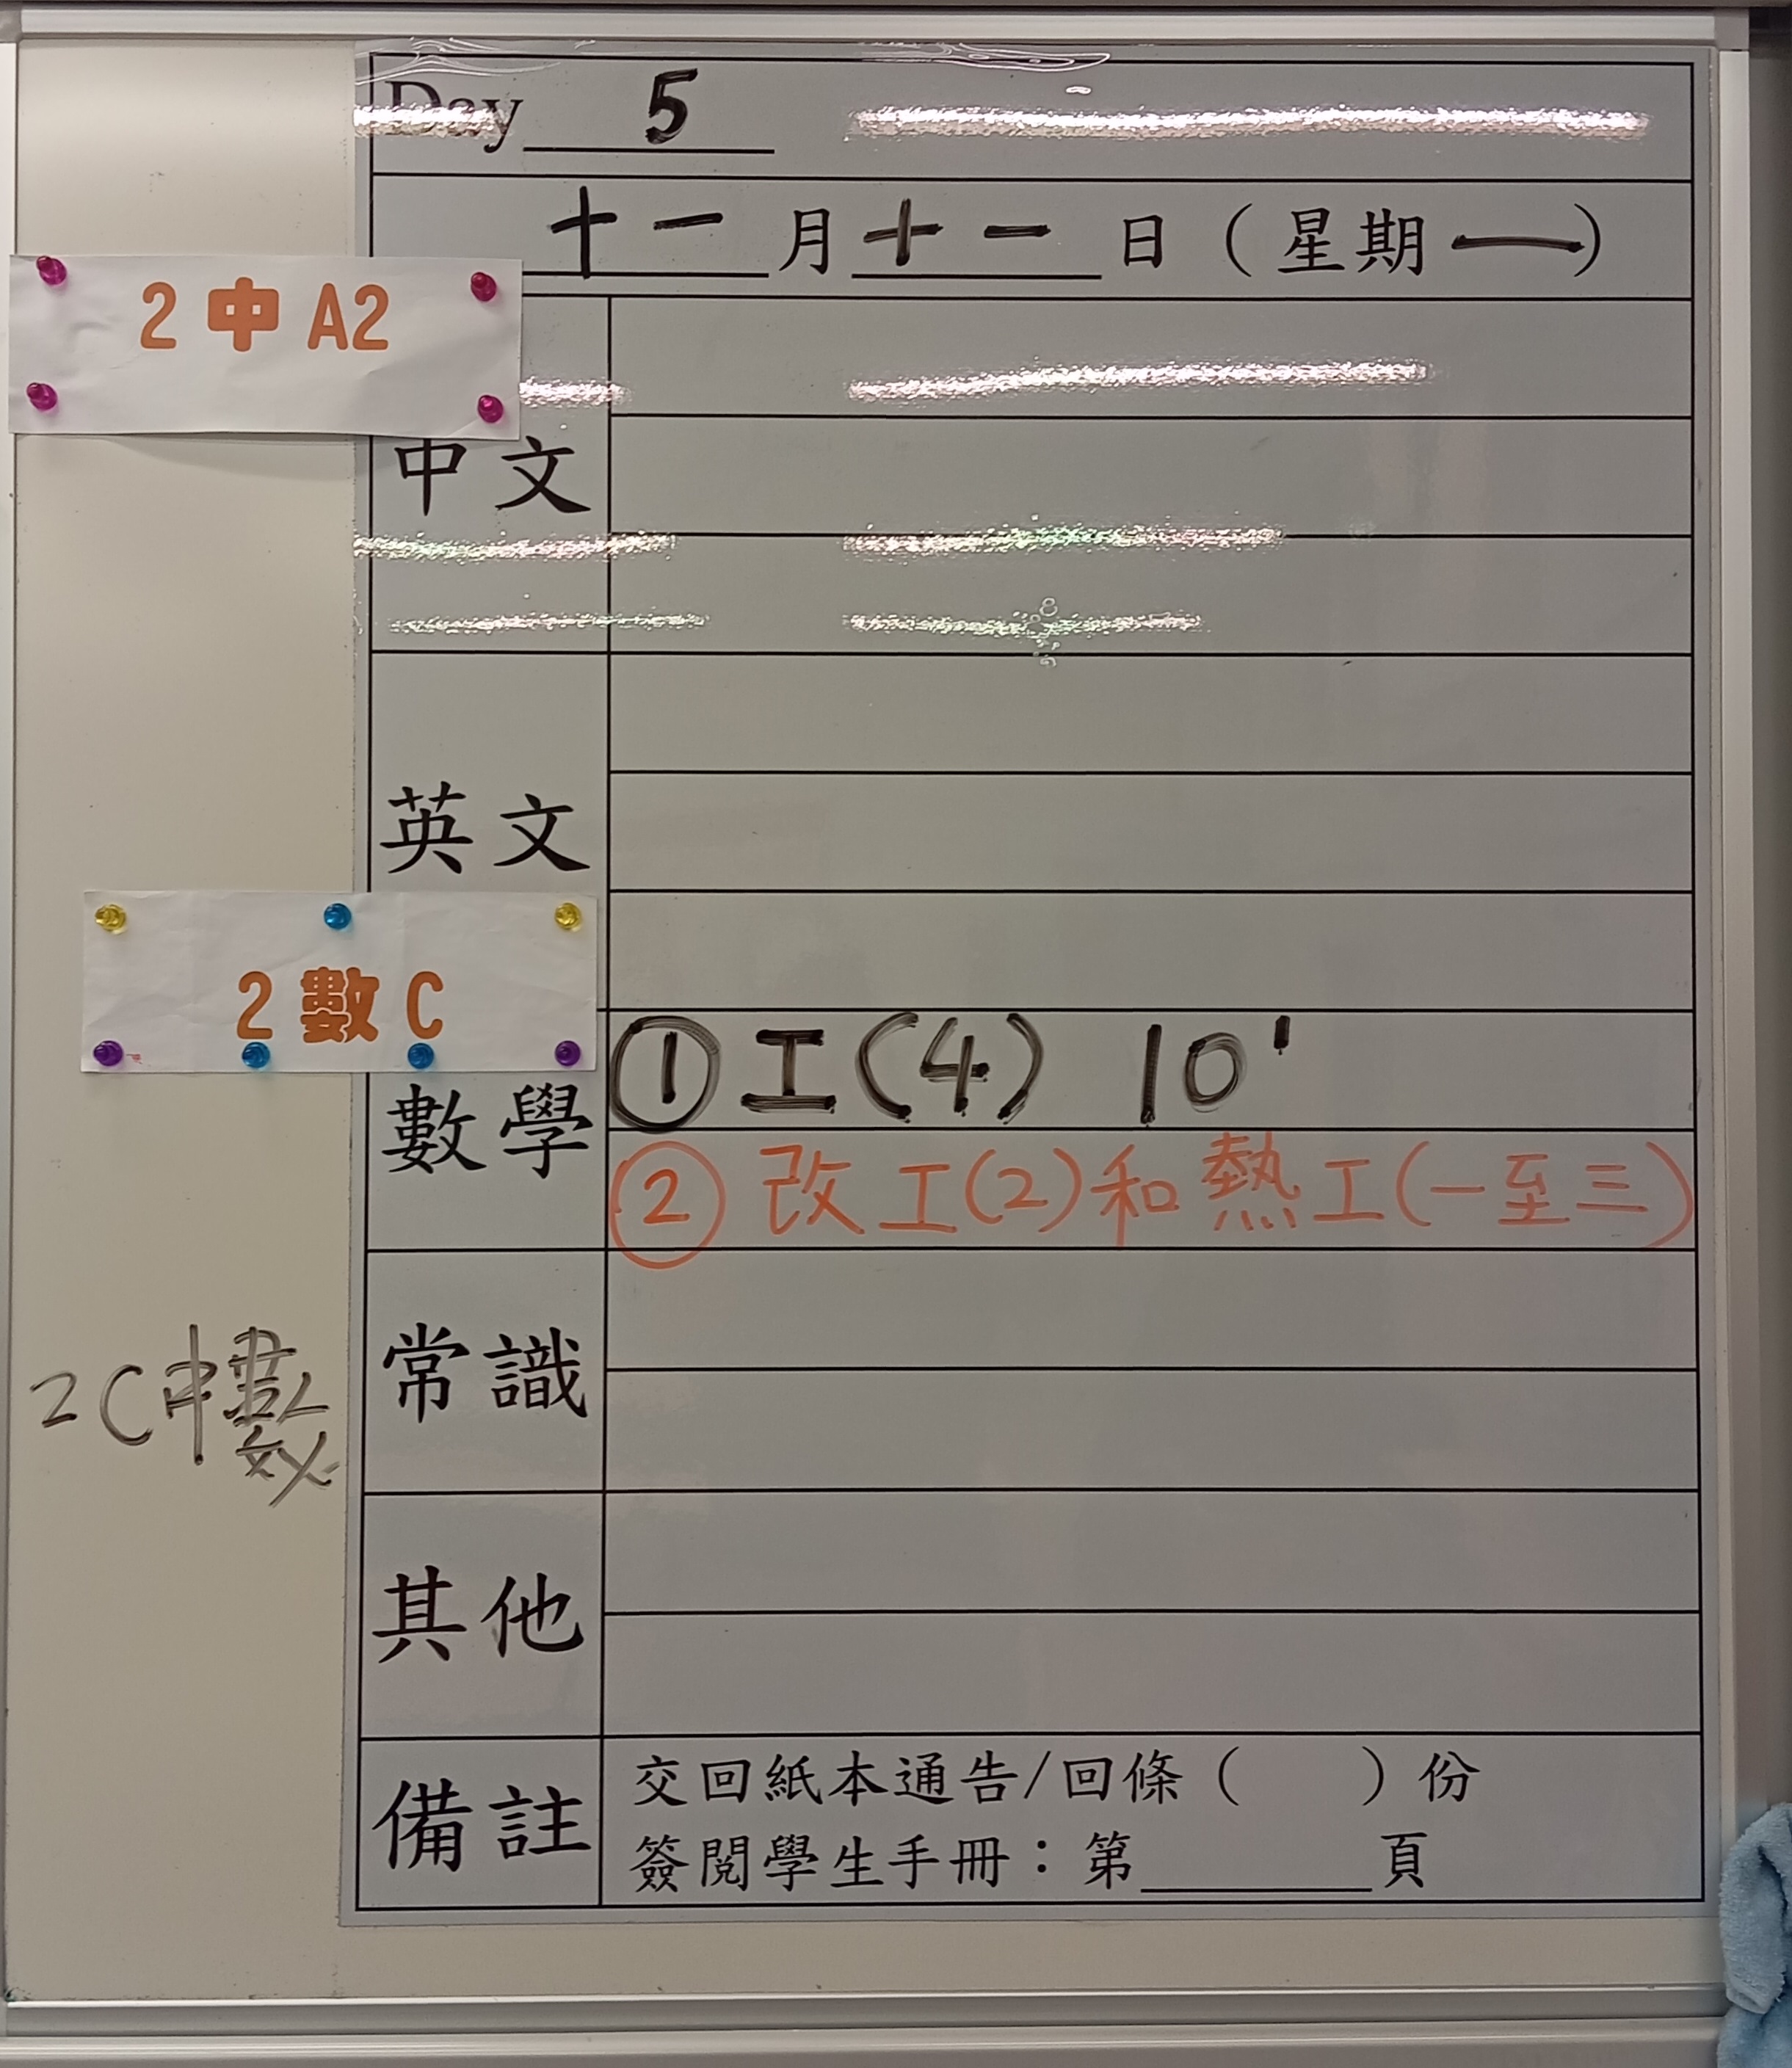 Day 5
十一月十一日（星期一）
2 中 A2
中文
英文
2 數 C
數學
① 工(4) 10'
② 改工(2)和熱工(一至三)
常識
2C中數
其他
備註
交回紙本通告/回條（ ）份
簽閱學生手冊：第____頁